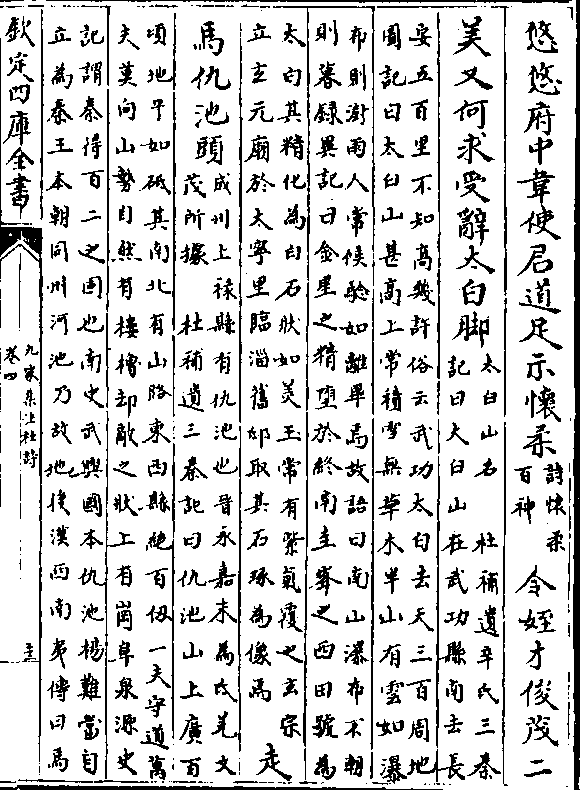 悠悠府中韋使君道足示懷柔
詩懷柔
百神
令姪才俊茂二
美又何求受辭太白脚
太白山名　杜補遺辛氏三秦
記曰太白山在武功縣南去長
安五百里不知高幾許俗云武功太白去天三百周地
圖記曰太白山甚高上常積雪無草木半山有雲如瀑
布則澍雨人常候驗如離畢焉故語曰南山瀑布不朝
則暮錄異記曰金星之精墮於終南圭峯之西田號為
太白其精化為白石狀如美玉常有紫氣覆之玄宗
立玄元廟於太寧里臨淄舊邸取其石琢為像焉
走
馬仇池頭
成州上祿縣有仇池也晉永嘉末為氐羌文
茂所據　杜補遺三秦記曰仇池山上廣百
頃地平如砥其南北有山路東西縣絶百仞一夫守道萬
夫莫向山勢自然有樓櫓却敵之狀上有崗阜泉源史
記謂秦得百二之固也南史武興國本仇池楊難當自
立為秦王本朝同州河池乃故地後漢西南夷傳曰馬
欽定四庫全書
九家集注杜詩
卷四